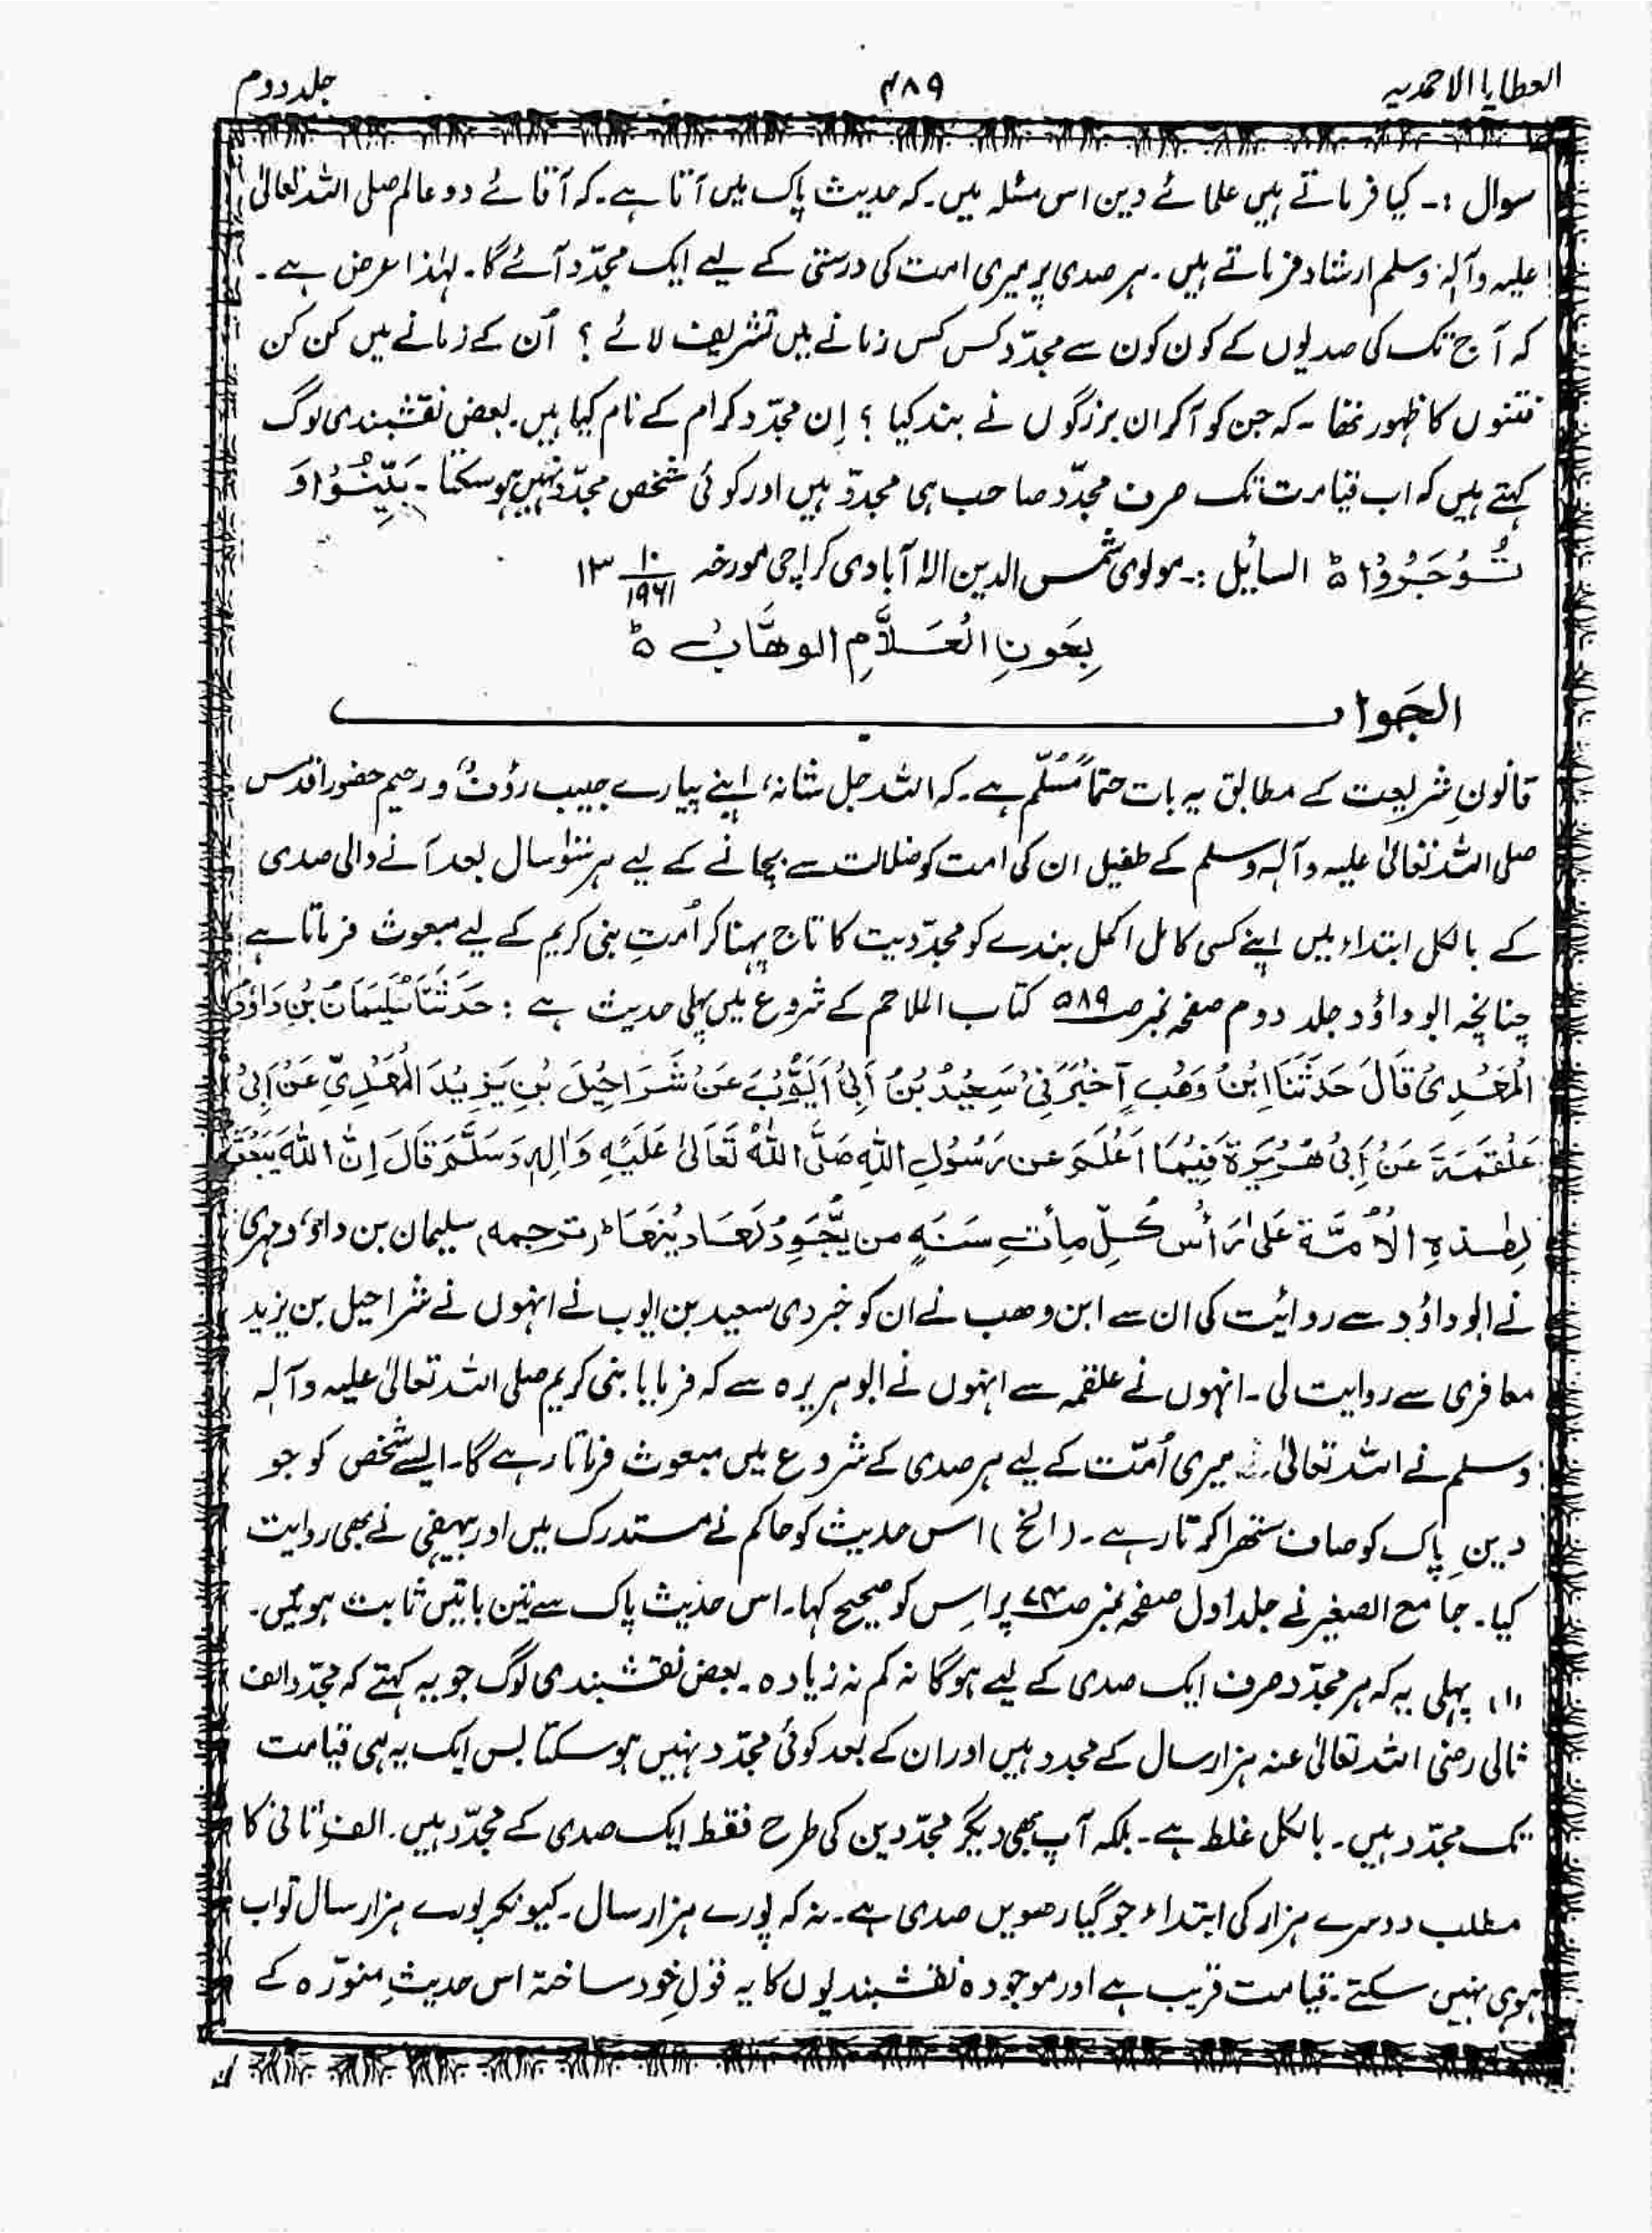 العطایا الاحمدیہ ۴۸۹ جلد دوم
سوال :۔ کیا فرماتے ہیں علمائے دین اس مسئلہ میں۔ کہ حدیث پاک میں آتا ہے۔ کہ آقائے دو عالم صلی اللہ تعالیٰ
علیہ وآلہٖ وسلم ارشاد فرماتے ہیں۔ ہر صدی پر میری امت کی درستی کے لیے ایک مجدّد آئے گا۔ لہٰذا عرض ہے۔
کہ آج تک کی صدیوں کے کون کون سے مجدّد کس کس زمانے میں تشریف لائے ؟ اُن کے زمانے میں کن کن
فتنوں کا ظہور تھا۔ کہ جن کو آکر ان بزرگوں نے بند کیا ؟ اِن مجدّد کرام کے نام کیا ہیں۔ بعض نقشبندی لوگ
کہتے ہیں کہ اب قیامت تک صرف مجدّد صاحب ہی مجدّد ہیں اور کوئی شخص مجدّد نہیں ہو سکتا۔ بَیِّنُوْا وَ
تُوْجَرُوْا ٥ السائیل :۔ مولوی شمس الدین الٰہ آبادی کراچی مورخہ ۱۰/۱۹۶۱ ۱۳
بِعَونِ الْعَلَّامِ الوھَّابْ ٥
الجَواب
قانونِ شریعت کے مطابق یہ بات حتماً مُسَلّم ہے۔ کہ اللہ جل شانہٗ اپنے پیارے حبیب رؤفٌ و رحیم حضور اقدس
صلی اللہ تعالیٰ علیہ وآلہٖ وسلم کے طفیل ان کی امت کو ضلالت سے بچانے کے لیے ہر سَو سال بعد آنے والی صدی
کے بالکل ابتداء میں اپنے کسی کامل اکمل بندے کو مجدّدیت کا تاج پہنا کر اُمتِ نبی کریم کے لیے مبعوث فرماتا ہے
چنانچہ ابو داؤد جلد دوم صفحہ نمبر صـ۵۸۹ کتاب الملاحم کے شروع میں پہلی حدیث ہے : حَدَثَنَا سُلَیْمَانُ بْنِ دَاؤدَ
الْمَھْدِیُ قَالَ حَدَثَنَا اِبْنُ وَھْبِ آخْبَرَنِیْ سَعِیْدُ بْنُ اَبِیْ اَیُّوْبَ عَنْ شَرَاحِیْلَ بْنِ یَزِیْدَ الْمَعْدِیِّ عَنْ اَبِیْ
عَلْقَمَۃَ عَنْ اَبِیْ ھُرَیْرَۃَ فِیْمَا اَعْلَمَ عن رَسُوْلِ اللہِ صَلَّی اللہُ تَعَالٰی عَلَیْہِ وَاٰلِہٖ وَسَلَّمَ قَالَ اِنَّ اللہَ یَبْعَثُ
لِھٰذِہِ الْاُمَّۃِ عَلیٰ رَأْسِ کُلِّ مِأَتِ سَنَۃٍ من یُّجَدِدُ لَھَا دِیْنَھَا۔ (ترجمہ) سلیمان بن داوٗد مہری
نے ابو داؤد سے روائیت کی ان سے ابن وھب نے ان کو خبر دی سعید بن ایوب نے انہوں نے شراحیل بن یزید
معافری سے روایت لی۔ انہوں نے علقمہ سے انہوں نے ابو ہریرہ سے کہ فرمایا نبی کریم صلی اللہ تعالیٰ علیہ وآلہٖ
وسلم نے اللہ تعالیٰ میری اُمّت کے لیے ہر صدی کے شروع میں مبعوث فرماتا رہے گا۔ ایسے شخص کو جو
دینِ پاک کو صاف ستھرا کرتا رہے۔ (الخ) اس حدیث کو حاکم نے مستدرک میں اور بیہقی نے بھی روایت
کیا۔ جامع الصغیر نے جلد اول صفحہ نمبر صـ۷۴ پر اس کو صحیح کہا۔ اس حدیث پاک سے تین باتیں ثابت ہوئیں۔
(۱) پہلی یہ کہ ہر مجدّد صرف ایک صدی کے لیے ہوگا نہ کم نہ زیادہ۔ بعض نقشبندی لوگ جو یہ کہتے کہ مجدّد الف
ثانی رضی اللہ تعالیٰ عنہ ہزار سال کے مجدد ہیں اور ان کے بعد کوئی مجدّد نہیں ہو سکتا بس ایک یہ ہی قیامت
تک مجدّد ہیں۔ بالکل غلط ہے۔ بلکہ آپ بھی دیگر مجدّدین کی طرح فقط ایک صدی کے مجدّد ہیں۔ الف ثانی کا
مطلب دوسرے ہزار کی ابتداء جو گیارھویں صدی ہے۔ نہ کہ پورے ہزار سال۔ کیونکہ پورے ہزار سال تو اب
ہو ہی نہیں سکتے۔ قیامت قریب ہے اور موجودہ نقشبندیوں کا یہ قولِ خود ساختہ اس حدیثِ منوّرہ کے